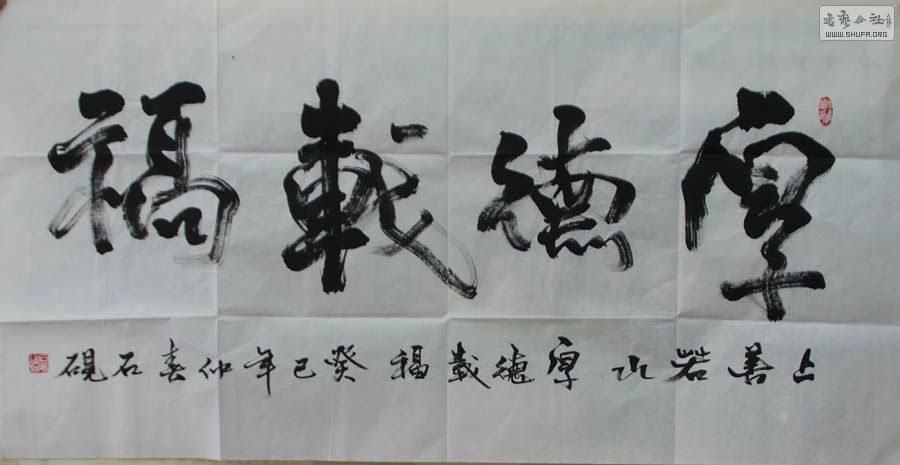 厚德載福
上善若水 厚德載福 癸巳年仲春石硯
書藝公社
WWW.SHUFA.ORG